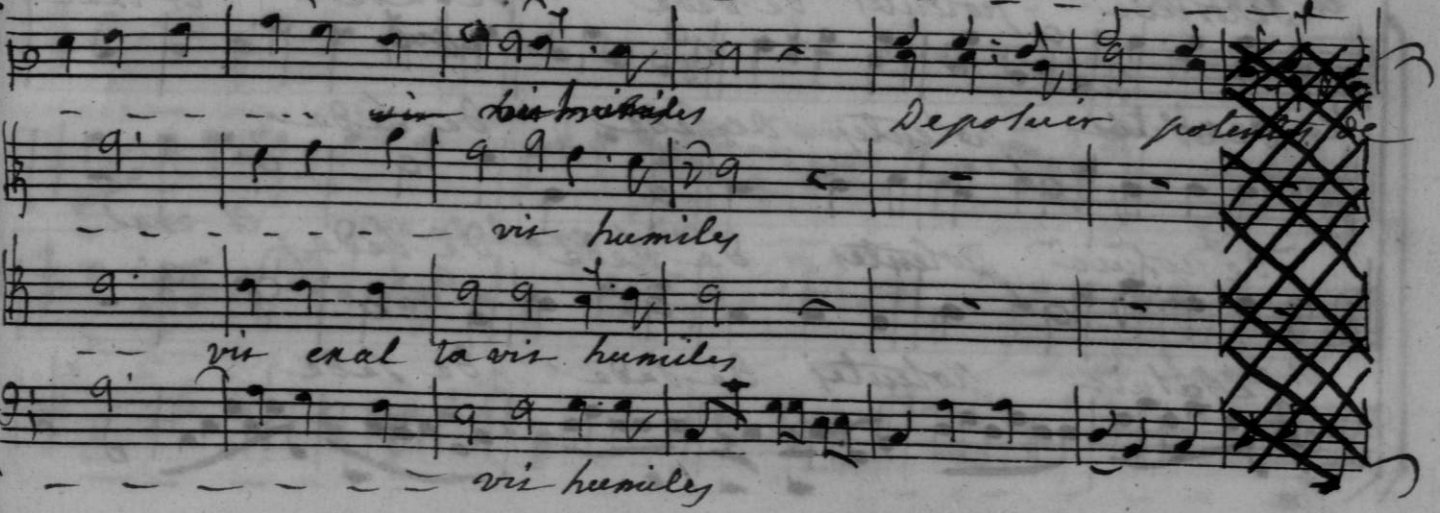 vit humiles Deposuit potentes de
vit humiles
vit exal ta vit humiles
vit humiles